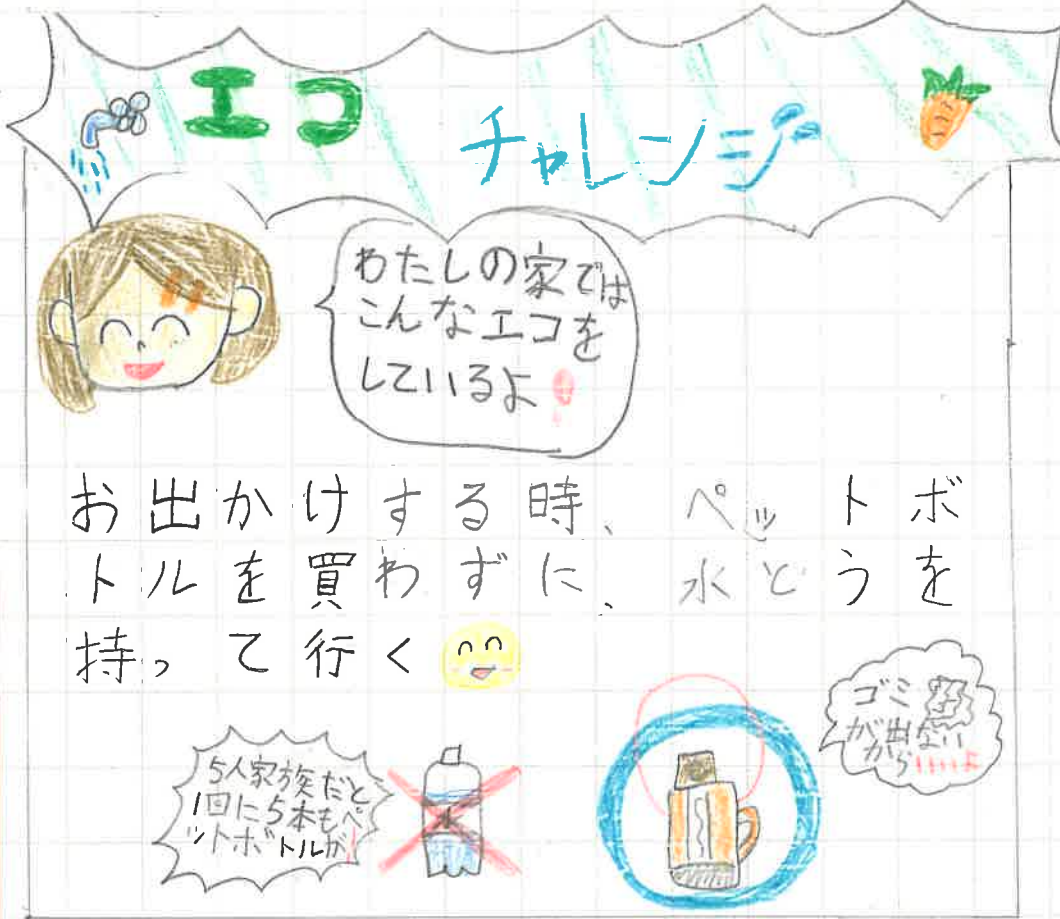 エコ
チャレンジ
わたしの家では
こんなエコを
しているよ!
お出かけする時、ペットボ
トルを買わずに、水とうを
持って行く
5人家族だと
1回に5本もペ
ットボトルが!
水
ゴミ
が出ない
からいいよ